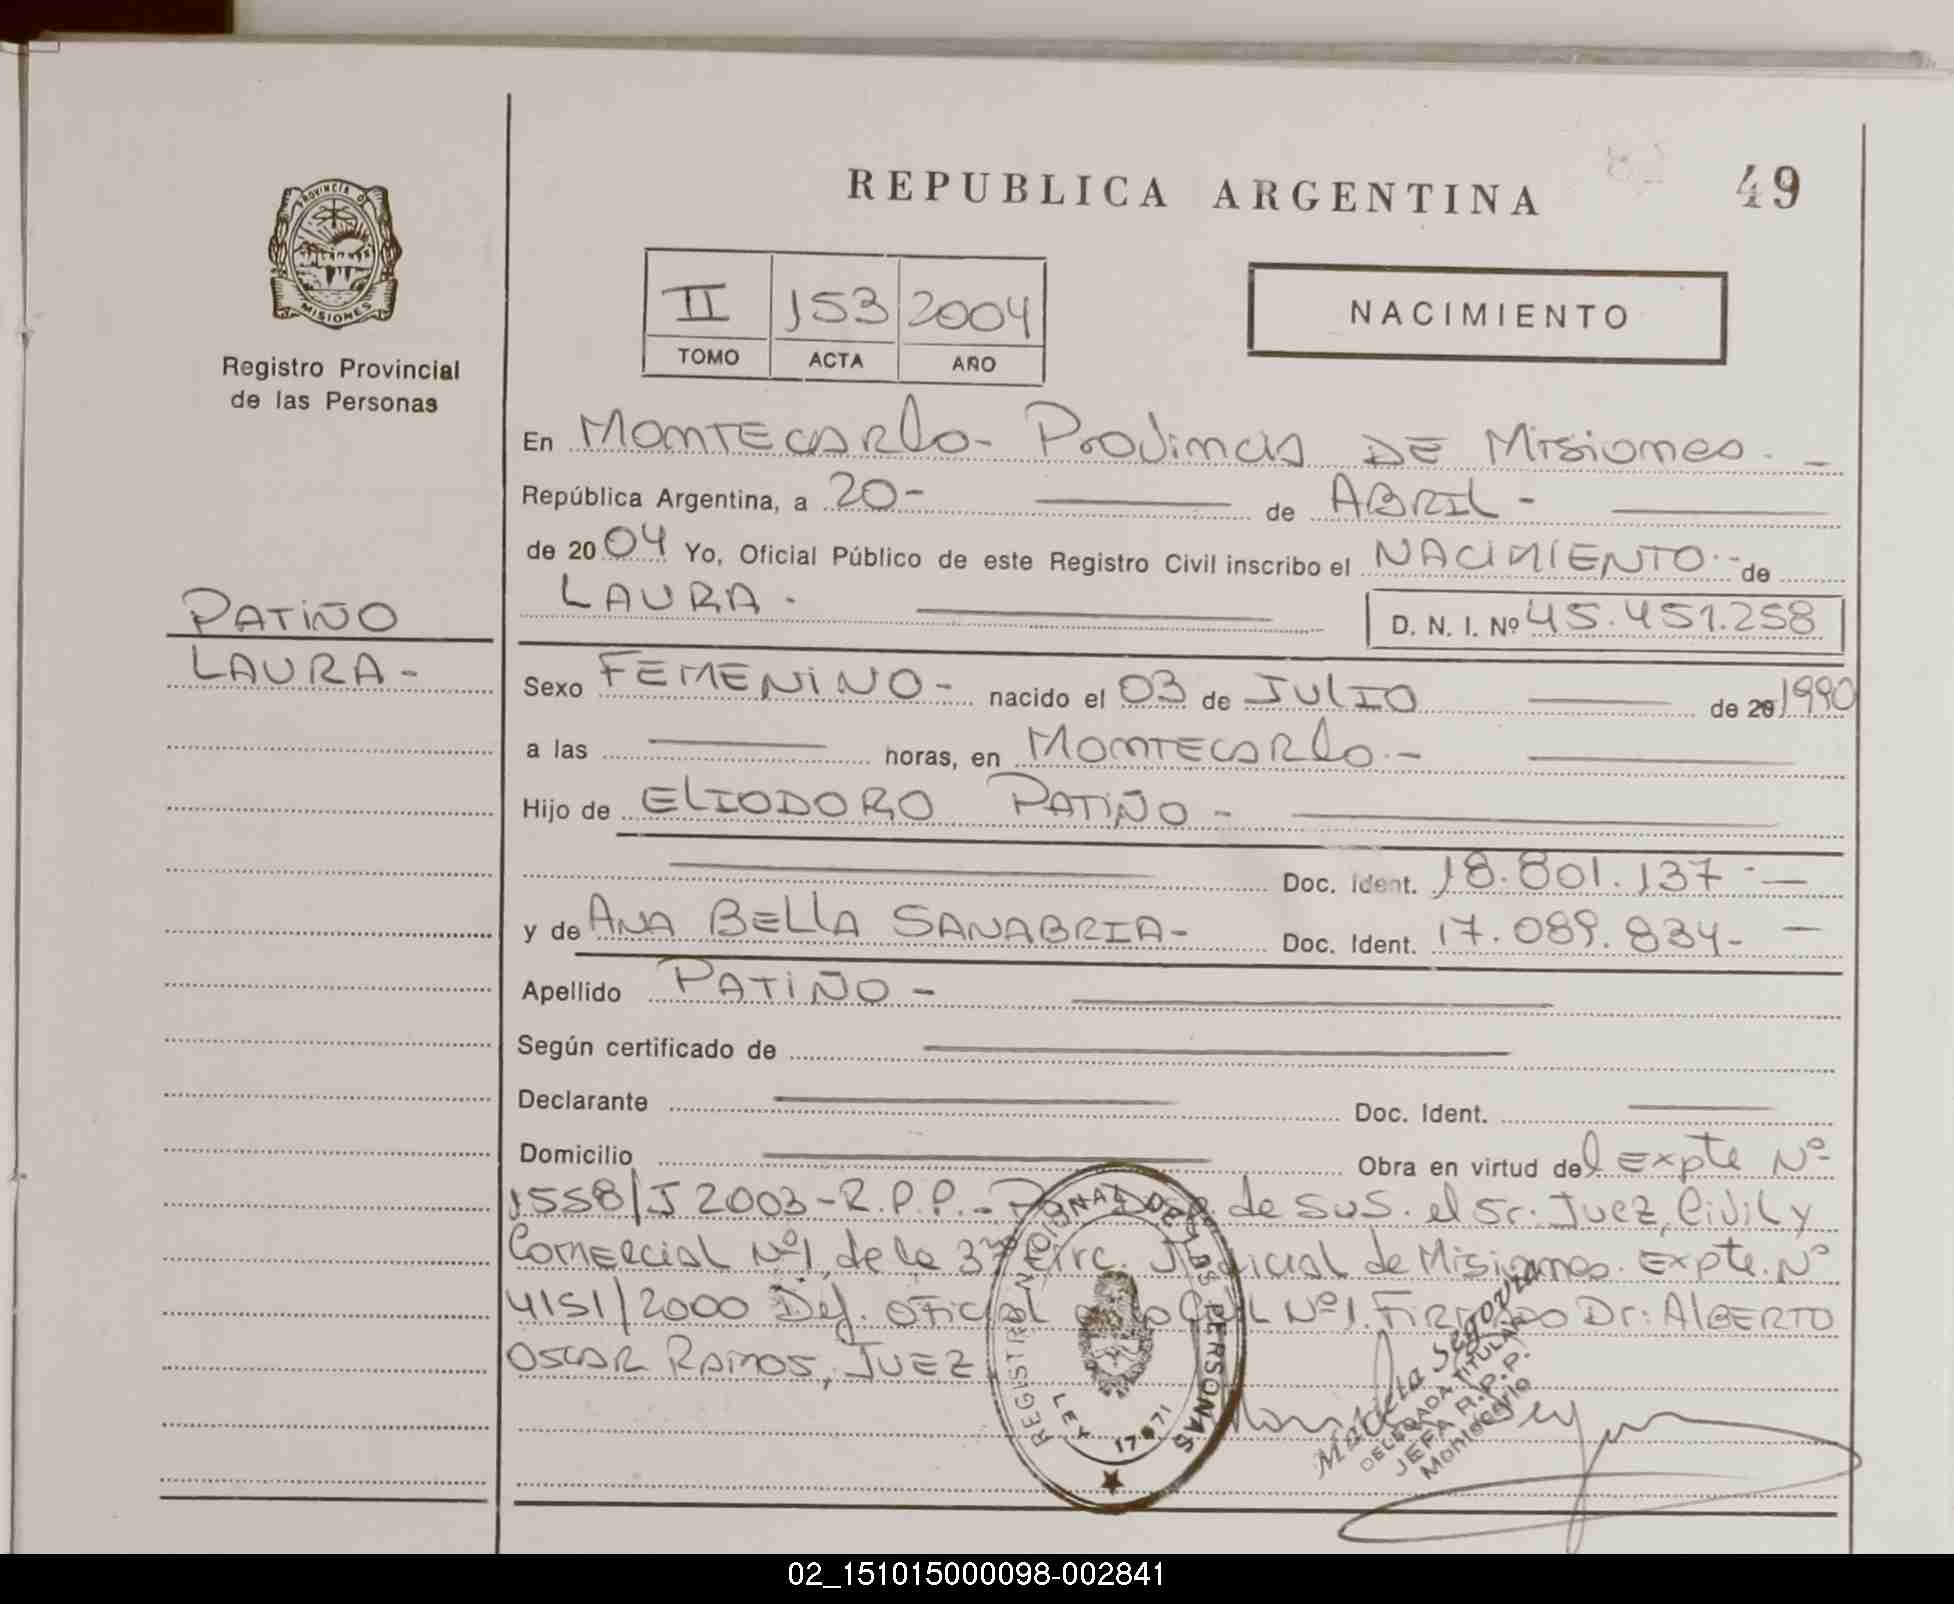 REPUBLICA ARGENTINA
49
PROVINCIA D
MISIONES
Registro Provincial
de las Personas
II 153 2004
TOMO ACTA AÑO
NACIMIENTO
En MONTECARLO- PROVINCIA DE MISIONES. -
República Argentina, a 20- de ABRIL-
de 2004 Yo, Oficial Público de este Registro Civil inscribo el NACIMIENTO.- de
LAURA.
D. N. I. Nº 45.451.258
PATIÑO
LAURA-
Sexo FEMENINO- nacido el 03 de JULIO de 20 1990
a las horas, en MONTECARLO.-
Hijo de ELIODORO PATIÑO-
Doc. Ident. 18.801.137.-
y de ANA BELLA SANABRIA- Doc. Ident. 17.089.834- -
Apellido PATIÑO-
Según certificado de
Declarante Doc. Ident.
Domicilio Obra en virtud del Expte Nº
1558/J 2003-R.P.P.- de S.U.S. el Sr. Juez, Civil y
Comercial Nº1, de la 3ra Circ. Judicial de Misiones. Expte. Nº
4151/2000 Def. Oficial Civil Nº1. FIRMADO Dr: ALBERTO
OSCAR RAMOS, JUEZ
REGISTRO NACIONAL DE LAS PERSONAS
LEY 17671
Marieta Segovia
DELEGADA TITULAR
JEFA R.P.P.
Montecarlo
02_151015000098-002841